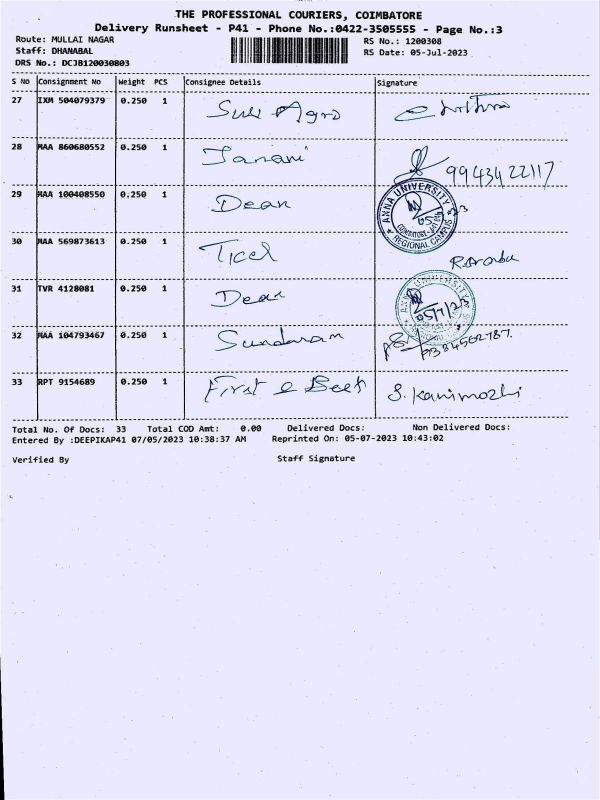 THE PROFESSIONAL COURIERS, COIMBATORE
Delivery Runsheet - P41 - Phone No.:0422-3505555 - Page No.:3
Route: MULLAI NAGAR
Staff: DHANABAL
DRS No.: DCJB120030803
RS No.: 1200308
RS Date: 05-Jul-2023
S No Consignment No Weight PCS Consignee Details Signature
27 IXM 504079379 0.250 1 Suli Agro Chithra
28 MAA 860680552 0.250 1 Janani 9943422117
29 MAA 100408550 0.250 1 Dean ANNA UNIVERSITY REGIONAL CAMPUS
30 MAA 569873613 0.250 1 Ticel
31 TVR 4128081 0.250 1 Dean 05/7/23
32 MAA 104793467 0.250 1 Sundaram
33 RPT 9154689 0.250 1 First & Best S. Kanimozhi
Total No. Of Docs: 33 Total COD Amt: 0.00 Delivered Docs: Non Delivered Docs:
Entered By :DEEPIKAP41 07/05/2023 10:38:37 AM Reprinted On: 05-07-2023 10:43:02
Verified By Staff Signature